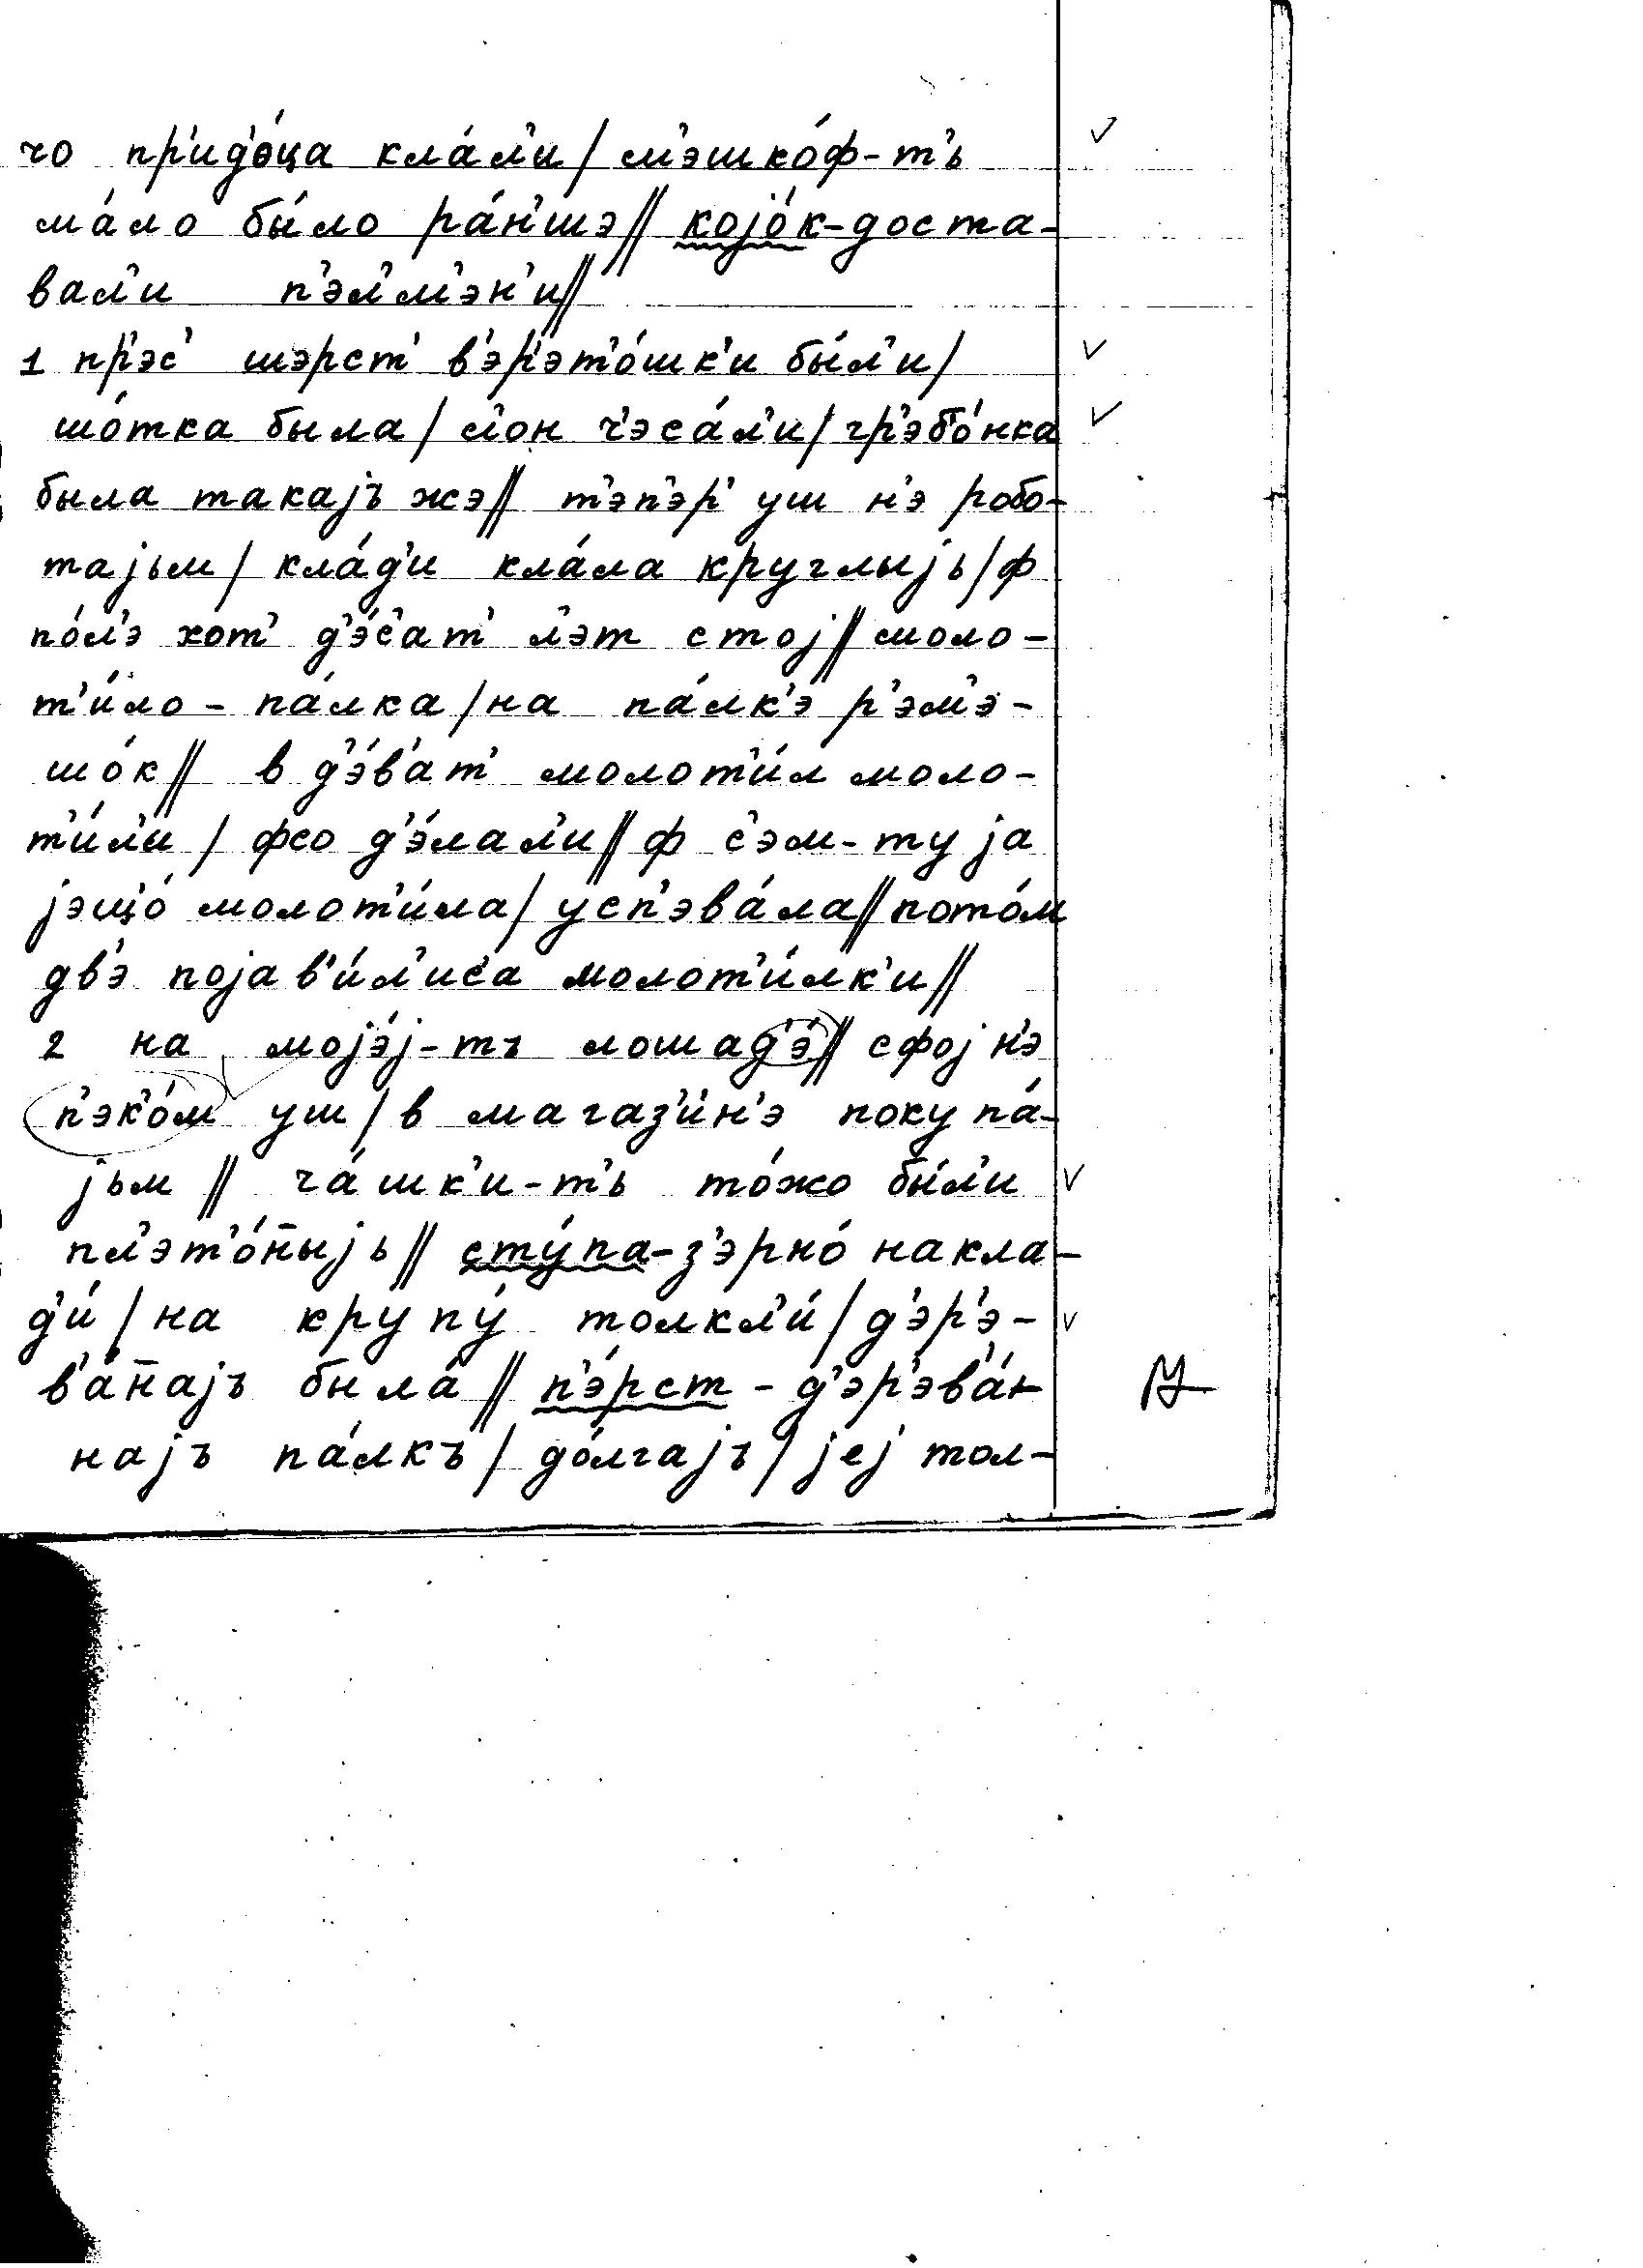 чо пр'ид'о́ца кла́л'и / м'эшко́ф-т'ь
ма́ло бы́ло ра́н'шэ // којо́к-доста-
вал'и п'эл'м'эн'и //
1 пр'эс' шэрст' в'эр'эт'о́шк'и бы́л'и /
шо́тка была / л'он ч'эса́л'и / гр'эб'о́нка
была такајъ жэ // т'эп'эр' уш н'э робо-
тајьм / кла́д'и кла́ла круглыјь / ф
по́л'э хот' д'э́с'ат' л'эт стој // моло-
т'и́ло - па́лка / на па́лк'э р'эм'э-
шо́к // в д'э́в'ат' молот'и́л моло-
т'и́л'и / фсо д'э́лал'и // ф с'эм-ту ја
јэщо́ молот'и́ла / усп'эва́ла // пото́м
дв'э појав'и́л'ис'а молот'и́лк'и //
2 на мојэ́ј-тъ лошад'э́ // сфој н'э
п'эк'о́м уш / в магаз'и́н'э покупа́-
јьм // ча́шк'и-т'ь то́жо бы́л'и
пл'эт'о́н̄ыјь // сту́па-з'эрно́ накла-
д'и́ / на крупу́ толкл'и́ / д'эр'э-
в'а́н̄ајъ была́ // п'э́рст - д'эр'эв'а́н-
најъ па́лкъ / до́лгајъ / јеј тол-